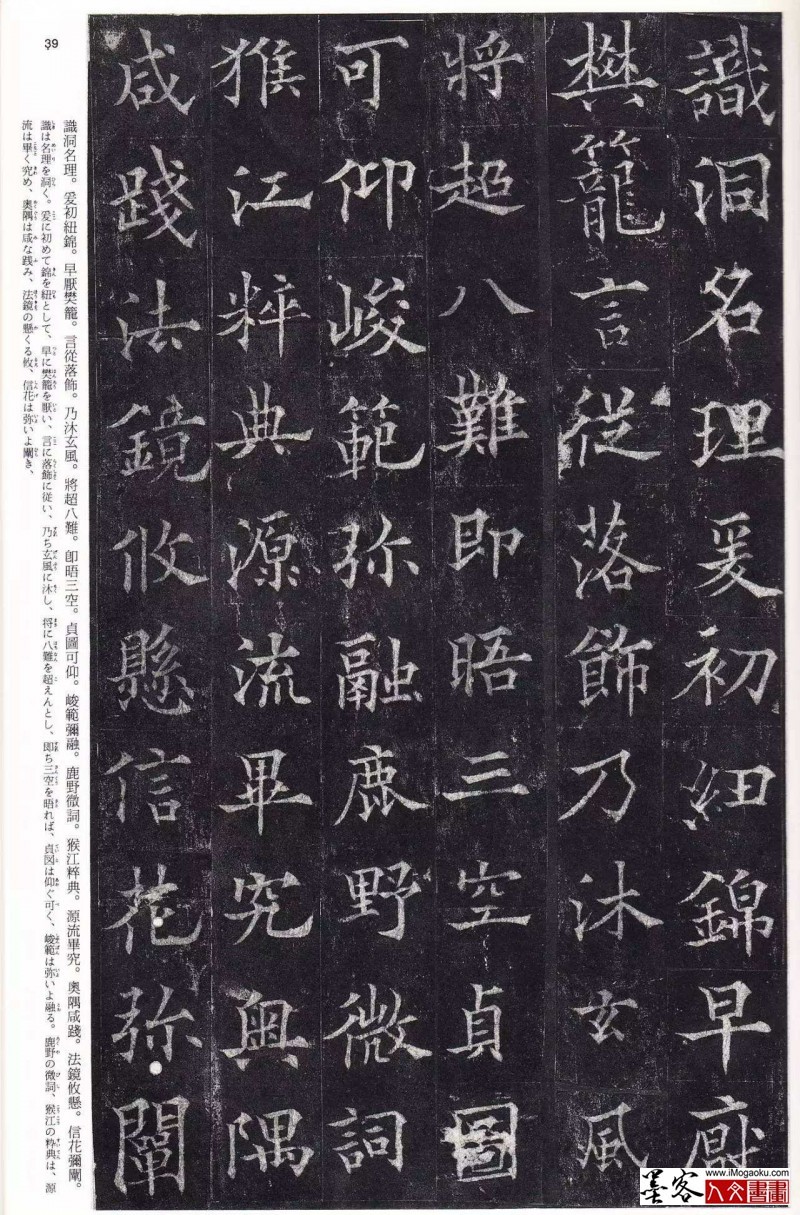 識洞名理爰初紐錦早厭
樊籠言從落飾乃沐玄風
將超八難即晤三空貞圖
可仰峻範弥融鹿野微詞
猴江粹典源流畢究奥隅
咸踐法鏡攸懸信花弥闡
39
識洞名理。爰初紐錦。早厭樊籠。言從落飾。乃沐玄風。將超八難。卽晤三空。貞圖可仰。峻範彌融。鹿野微詞。猴江粹典。源流畢究。奧隅咸踐。法鏡攸懸。信花彌闡。
識は名理を洞く。爰に初めて錦を紐として、早に樊籠を厭い、言に落飾に従い、乃ち玄風に沐し、将に八難を超えんとし、即ち三空を晤れば、貞図は仰ぐ可く、峻範は弥いよ融る。鹿野の微詞、猴江の粋典は、源
流は畢く究め、奥隅は咸な践み、法鏡の懸くる攸、信花は弥いよ闡き、
www.iMogaoku.com
墨客
人文書畫